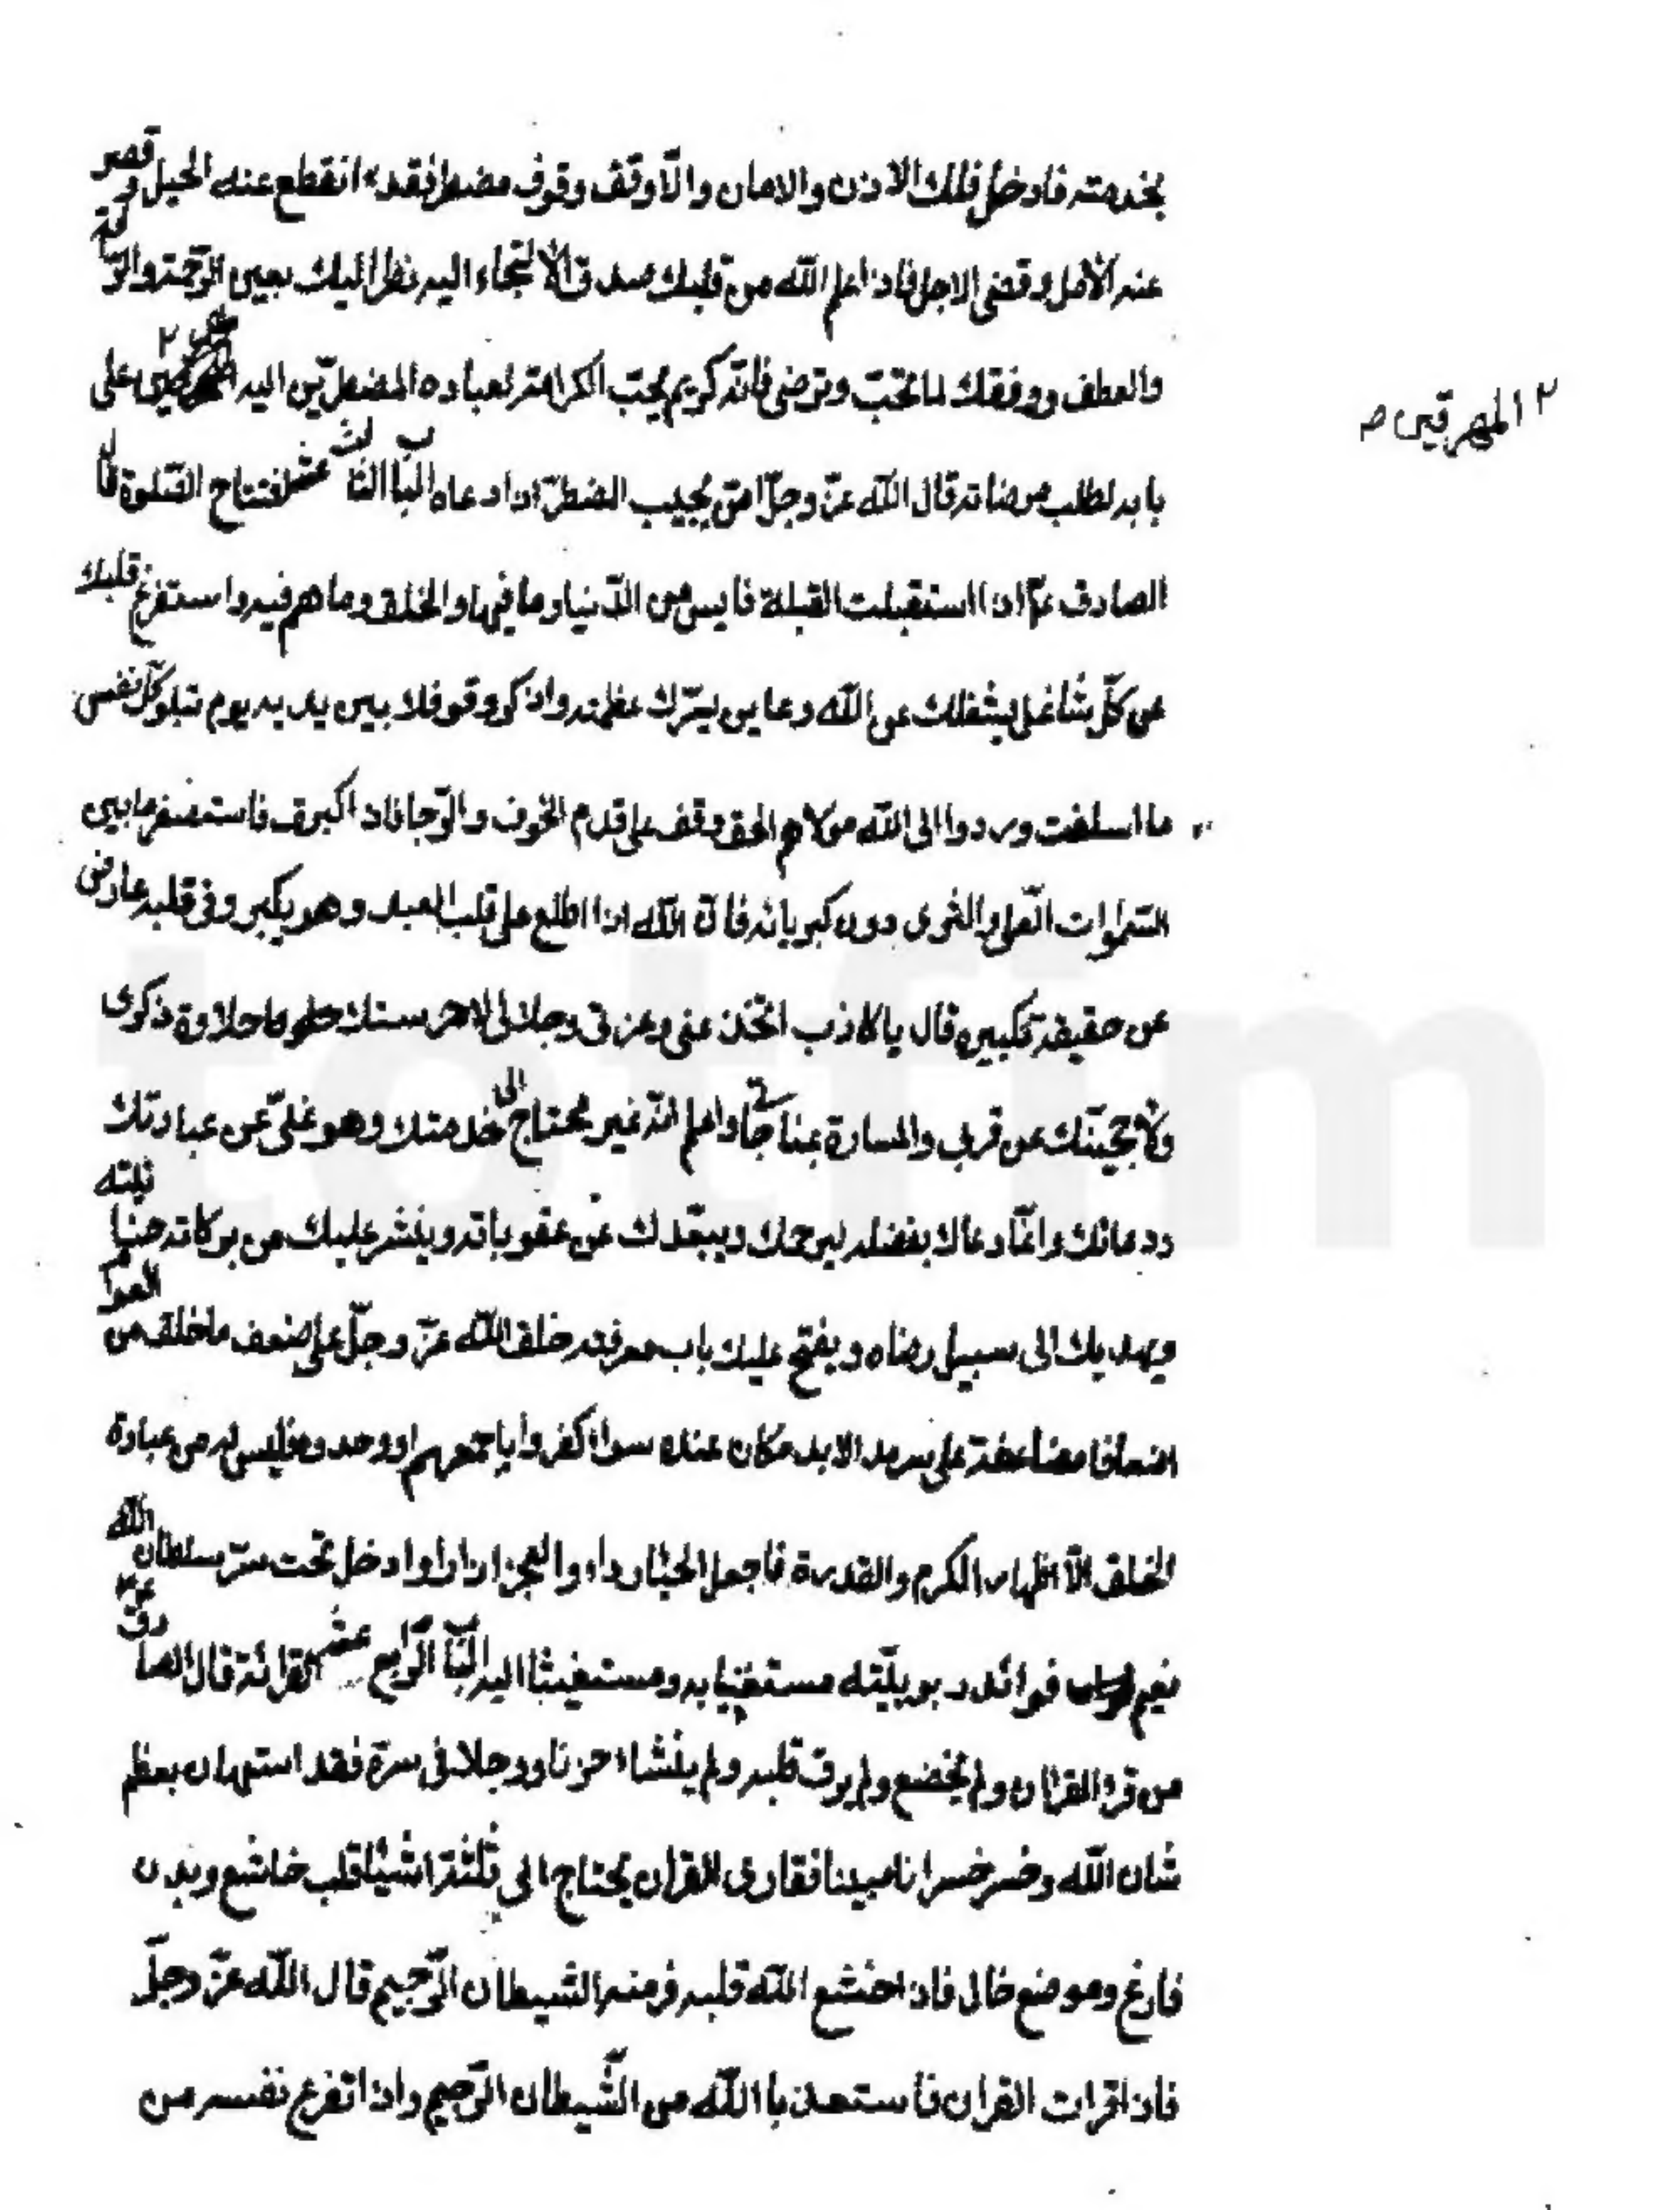 بخدمته فادخل فلك الاذن والامان والّا وقف وقوف مضطر فقد انقطع عنه الحيل وقصر
عنه الامل وقضى الاجل فاذا علم الله من قلبك صدق الالتجاء اليه نظر اليك بعين الرّحمة والرّافة
والعطف ووفقك لما تحبّ وترضى فانّه كريم يحبّ الكرامة لعباده المضطرّين اليه على
٢ المحرقين ص
بابه لطلب مرضاته قال الله عزّ وجلّ امّن يجيب المضطرّ اذا دعاه الباب الثالث عشر افتتاح الصّلوة قال
الصادق عم اذا استقبلت القبلة فايس من الدّنيا وما فيها والخلق وما هم فيه واستفرغ قلبك
عن كلّ شاغل يشغلك عن الله وعاين بسرّك عظمته واذكر وقوفك بين يديه يوم تبلو كلّ نفس
ما اسلفت وردوا الى الله مولاهم الحق وقف على قدم الخوف والرّجا فاذا كبرت فاستصغر ما بين
السّموات العلى والثرى دون كبريائه فانّ الله اذا اطلع على قلب العبد وهو يكبر وفى قلبه عارض
عن حقيقة تكبيره قال يا كاذب اتخدعنى وعزتى وجلالى لاحرمنك حلاوة ذكرى
ولاحجبنّك عن قربى والمسارة بمناجاتى واعلم انّه غير محتاج الى خدمتك وهو غنىّ عن عبادتك
ودعائك وانّما دعاك بفضله ليرحمك ويبعّدك عن عقوباته وينشر عليك من بركات حنانيّته
ويهديك الى سبيل رضاه ويفتح عليك باب مغفرته فلو خلق الله عزّ وجلّ على ضعف ما خلق من العوالم
اضعافا مضاعفة على سرمد الابد لكان عنده سواء كفروا باجمعهم او وحدوه فليس له من عبادة
الخلق الّا اظهار الكرم والقدرة فاجعل الحياء رداء والعجز ازارا وادخل تحت سرّ سلطان الله
فوائد ربوبيّته مستعينا به ومستغيثا اليه الباب الرّابع عشر القرائة قال الصادق عم
من قرء القران ولم يخضع ولم يرق قلبه ولم ينشاء حزنا ووجلا فى سرّه فقد استهان بعظم
شان الله وخسر خسرانا مبينا فقارى القران يحتاج الى ثلثة اشياء قلب خاشع وبدن
فارغ وموضع خالى فاذا خشع الله قلبه فر منه الشيطان الرّجيم قال الله عزّ وجلّ
فاذا قرات القران فاستعذ بالله من الشّيطان الرّجيم واذا تفرغ نفسه من